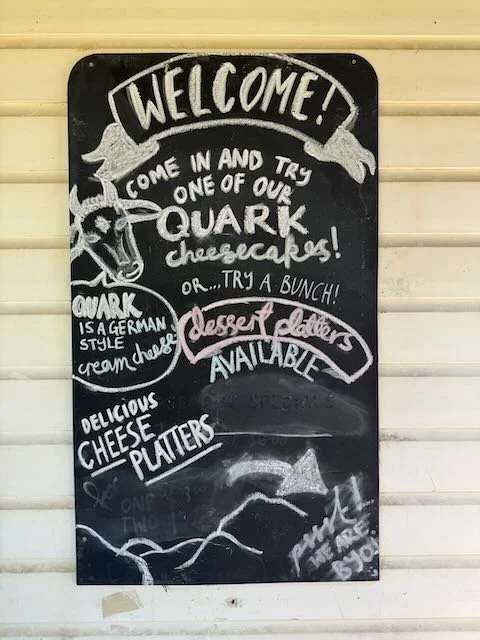 WELCOME!
COME IN AND TRY
ONE OF OUR
QUARK
cheesecakes!
OR...TRY A BUNCH!
QUARK
IS A GERMAN
STYLE
cream cheese
dessert platters
AVAILABLE
SPECIALS
DELICIOUS
CHEESE
PLATTERS
for
ONE
TWO
psst!...
WE ARE
BYO!